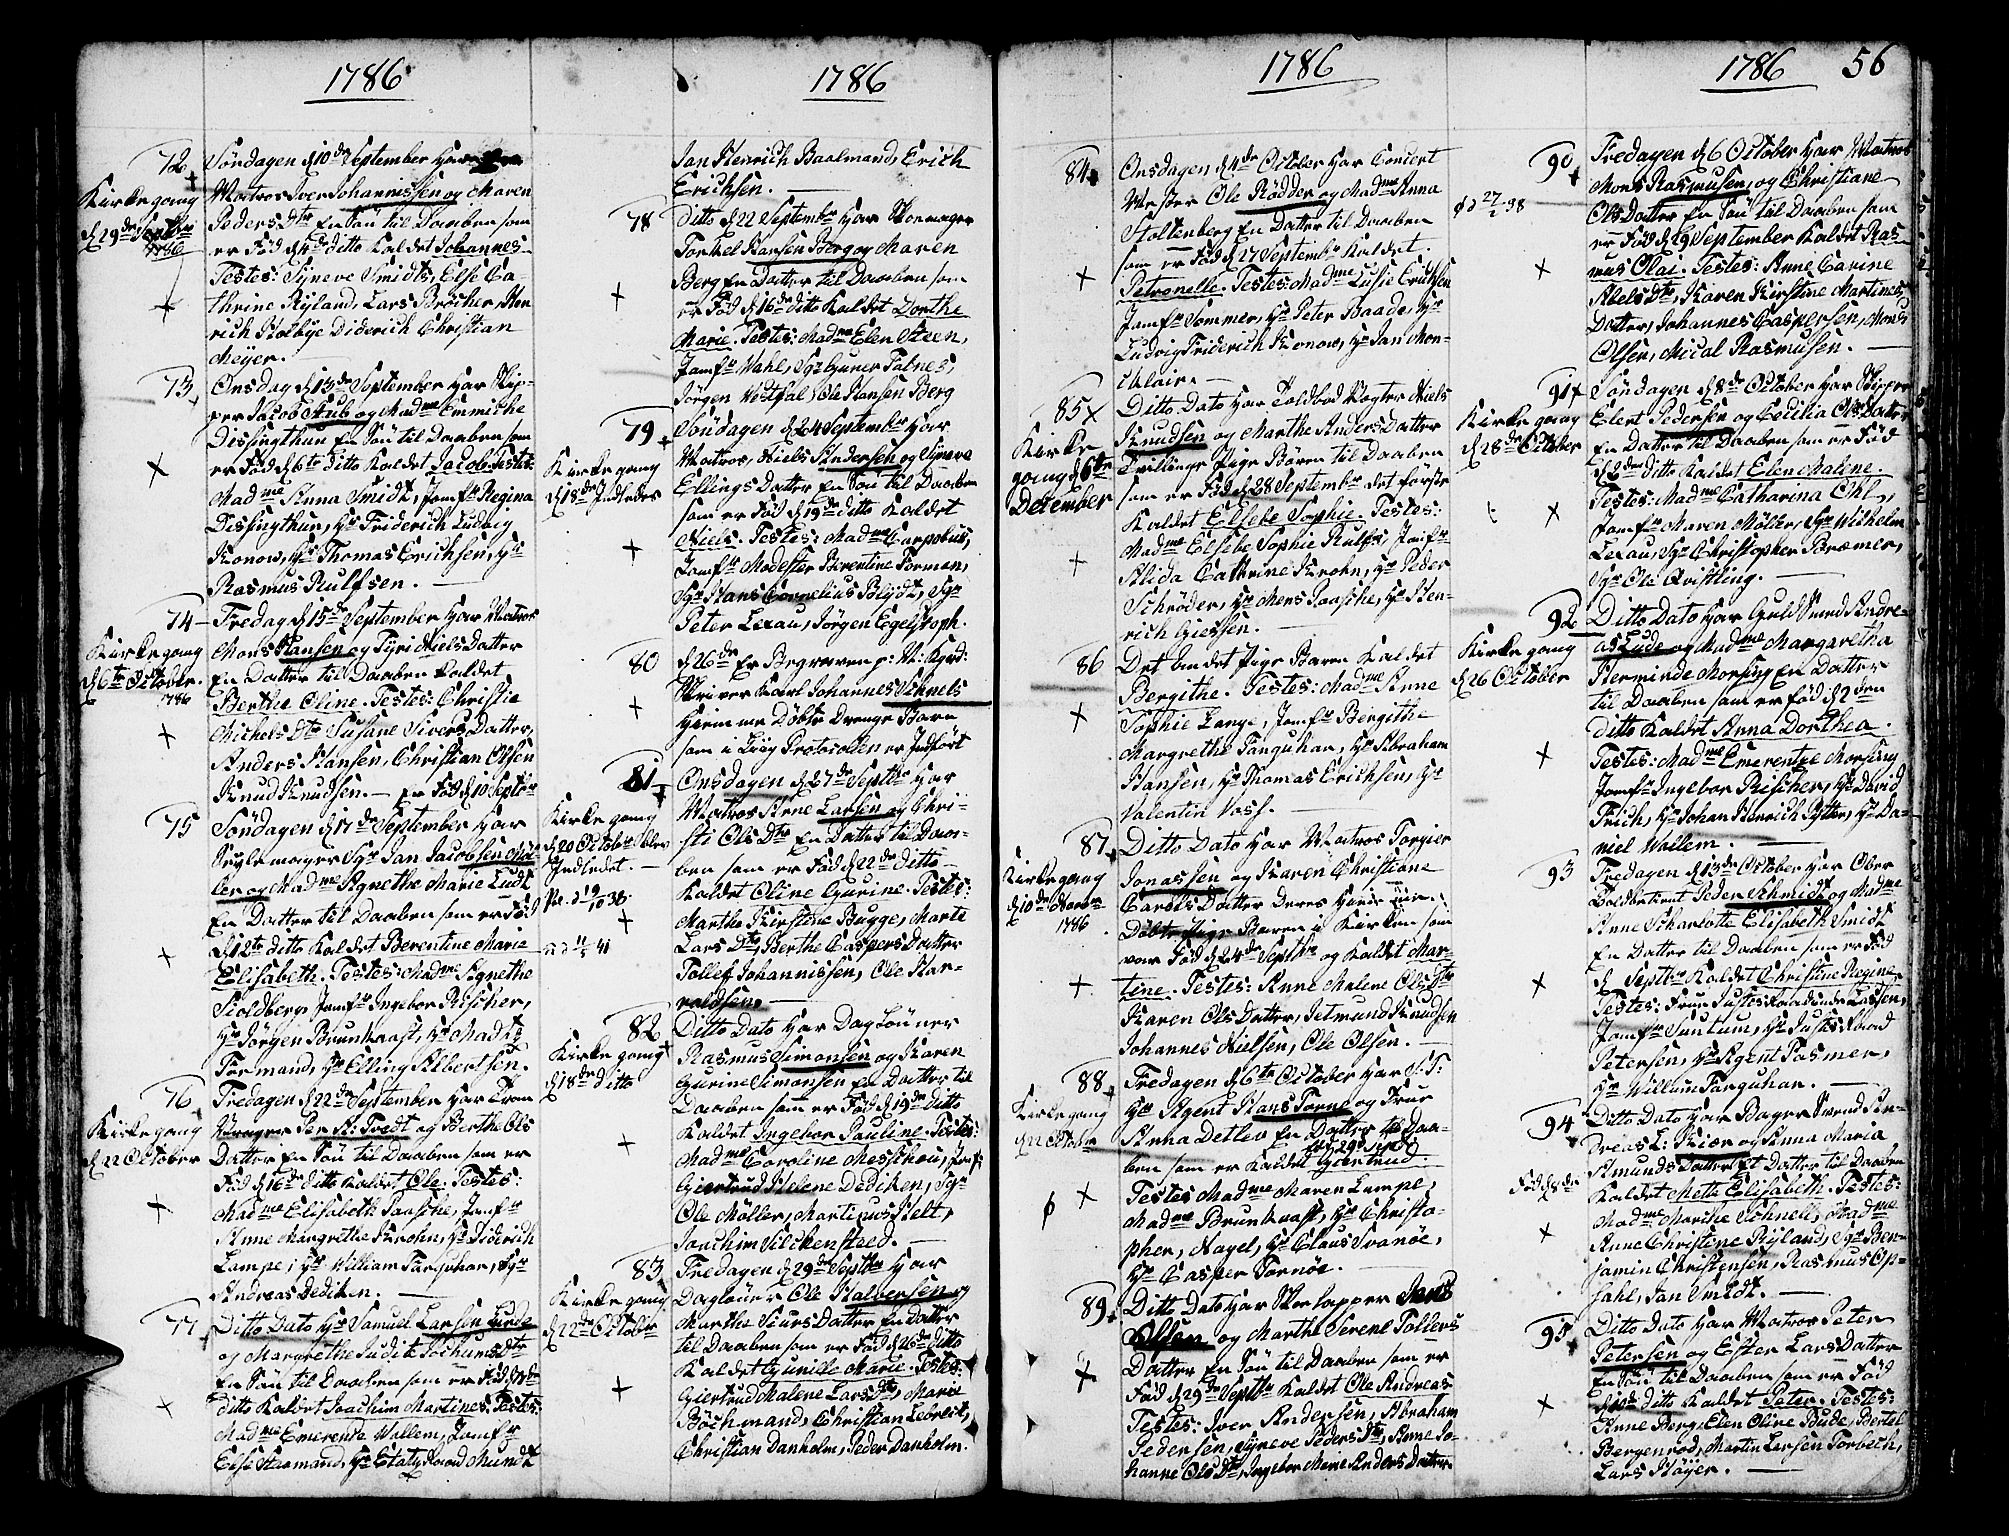 1786
72
Kirkegang
d 29de Septbr
1786
Søndagen d 10de September har
Matros Iver Johannissen og Maren
Peders Dtr En Søn til Daaben som
er Fød d 4de ditto Kaldet Johannes
Testes: Syneve Smidts, Else Ca-
thrine Ryland, Lars Brøcher, Hen
rich Holbye Diderich Christian
Meyer.
73
Onsdag d 13de September har Skip-
per Jacob Aub og Madme Emmiche
Dissingthun En Søn til Daaben som
er Fød d 6te ditto Kaldet Jacob Testes
Madme Anna Smidt, Jomfr Regina
Dissingthun, Hr Friderich Ludvig
Konow, Hr Thomas Erichsen, Hr
Rasmus Rulfsen.
74
Kirkegang
d 6te October
1786
Fredag d 15de September har Matros
Mons Hansen og Tyri Niels Datter
En Datter til Daaben Kaldet
Berthe Oline. Testes: Christie
Michels Dtr Susane Sivers Datter,
Anders Hansen, Christian Olsen
Knud Knudsen. — er Fød d 10 Septbr
75
Søndagen d 17de September har
Seylemager Sgr Jan Jacobsen Møl-
ler og Madme Agnethe Marie Ludt
En Datter til Daaben som er Fød
d 12te ditto Kaldet Berentine Marie
Elisabeth. Testes: Madme Agnethe
Stoldberg, Jomfr Ingebor Rischer,
Hr Jørgen Brunkraft, Hr Mads
Formand, Hr Elling Albertsen.
76
Kirkegang
d 22 October
Fredagen d 22de September har
Per A: Tvedt og Berthe Ols
Datter En Søn til Daaben som er
Fød d 16de ditto Kaldet Ole. Testes:
Madme Elisabeth Paasche, Jomfr
Anne Margrethe Krohn, Hr Diderich
Lampe, Hr William Farquhar, Sgr
Andreas Dediken.
77
Ditto Dato Hr Samuel Larsen Lunde
og Margrethe Judite Jochums Dtr
En Søn til Daaben som er Fød d 18de
ditto Kaldet Joachim Martines. Testes:
Madme Emerente Wollem, Jomfr
Else Haamand, Hr Etatz Raad Mundt
1786
Jan Henrich Baalmand, Erich
Erichsen.
78
Ditto d 22 Septembr har Skomager
Torkel Hansen Berg og Maren
Berg En Datter til Daaben som
er Fød d 16de ditto Kaldet Dorthe
Marie. Testes: Madme Elen Steen,
Jomfr Wahl, Sgr Giurer Falnes,
Jørgen Westfal, Ole Hansen Berg
79
Kirkegang
d 18de Indledes
Søndagen d 24 Septembr har
Matros, Niels Andersen og Syneve
Ellings Datter En Søn til Daaben
som er Fød d 19de ditto Kaldet
Niels. Testes: Madme Carpobus,
Jomfr Modester Berentine Forman,
Sgr Hans Cornelius Blydt, Sgr
Peter Lexau, Jørgen Egelstroph.
80
d 26de Er Begraven p: M: Kgrd:
Skriver Karl Johannes Schnels
Hiemme Døbte Drenge Barn
som i Liig Protocollen er Indført
81
Kirkegang
d 20 Octobr blev
Indledet.
Onsdagen d 27de Septbr har
Matros Arne Larsen og Chri-
sti Ols Dtr En Datter til Daa-
ben som er Fød d 22de ditto
Kaldet Oline Gurine. Testes:
Marthe Kirstine Bugge, Marte
Lars Dtr, Berthe Caspers Datter
Tollef Johannissen, Ole Har-
raldsen.
82
Kirkegang
d 18de ditto
Ditto Dato har Dagløner
Rasmus Simonsen og Karen
Gurine Simonsen En Datter til
Daaben som er Fød d 19de ditto
Kaldet Ingebor Pauline. Testes:
Madme Caroline Meschou, Jomfr
Giertrud Helene Dediken, Sgr
Ole Møller, Martinus Helt,
Joachim Silckensteed.
83
Kirkegang
d 22de Octobr
Fredagen d 29de Septbr har
Dagløner Ole Halversen og
Marthe Siurs Datter En Datter
til Daaben som er Fød d 26de ditto
Kaldet Gunille Marie. Testes:
Giertrud Malene Lars Dtr, Marie
Bøchmand, Christian Lebrect,
Christian Danholm, Peder Danholm.
1786
84
Onsdagen d 4de October har Concert
Mester Ole Rødder og Madme Anna
Stoltenberg En Datter til Daaben
som er Fød d 27 Septembr Kaldet
Petronelle. Testes: Madme Lusie Erichsen
Jomfr Sommer, Hr Peter Baade, Hr
Ludvig Friderich Konow, Hr Jan Mon-
clair.
85
Kirke
gang d 6te
December
Ditto Dato har Toldbod Vagter Niels
Knudsen og Marthe Anders Datter
Tvillinge Pige Børn til Daaben
som er Fød d 28 Septembr det første
Kaldet Elsebe Sophie. Testes:
Madme Elsebe Sophie Rulfs, Jomfr
Alida Cathrine Krohn, Hr Peder
Schrøder, Hr Mens Paasche, Hr Hen-
rich Giessen.
86
Det andet Pige Barn Kaldet
Bergithe. Testes: Madme Anne
Sophie Lange, Jomfr Bergithe
Margrethe Farquhar, Hr Abraham
Hansen, Hr Thomas Erichsen, Hr
Valentin Voss.
87
Kirkegang
d 10de
1786
Ditto Dato har Matros Torgier
Jonassen og Karen Christiane
Carels Datter Deres Hiemme
Døbte Pige Barn i Kirken som
var Fød d 24de Septbr og Kaldet Mar-
tine. Testes: Anne Malene Ols Dtr
Karen Ols Datter, Jetmund Knudsen
Johannes Nielsen, Ole Olsen.
88
Kirkegang
d 22 Octobr
Fredagen d 6te October har S:T:
Hr Agent Hans Forne og Frue
Anna Detlev En Datter til Daa-
ben som er Kaldet Giertrud
fød 29de Septr
Testes Madme Maren Lampe,
Madme Brunkraft, Hr Christo-
pher, Nagel, Hr Claus Svanøe,
Hr Casper Fornøe.
89
Ditto Dato har Skolapper
Olsen og Marthe Serene Tolders
Datter En Søn til Daaben som er
Fød d 29de Septbr Kaldet Ole Andreas
Testes: Iver Andersen, Abraham
Pedersen, Syneve Peders Dtr, Anne Jo-
hanne Ols Dtr, Ingebor Marie Anders Datter.
1786 56
90
Fredagen d 6 October har Matros
Mons Rasmusen, og Christiane
Ols Datter En Søn til Daaben som
er Fød d 29 September Kaldet Ras-
mus Olai. Testes: Anne Carine
Abels Dtr, Karen Kirstine Martines
Datter, Johannes Caspersen, Mons
Olsen, Mical Rasmusen.
91
Kirkegang
d 28de October
Søndagen d 8de October har Skipper
Elert Pedersen og Cecilia Ols Datter
En Datter til Daaben som er Fød
d 2den ditto Kaldet Elen Malene.
Testes: Madme Catharina Ohl,
Jomfr Maren Møller, Sgr Wilhelm
Lexau, Sgr Christopher Bræmer,
Sgr Ole Qvistling.
92
Kirkegang
d 26 October
Ditto Dato har Guld Smed Andre-
as Lude og Madme Margaretha
Herminde Morsing En Datter
til Daaben som er Fød d 2den
ditto Kaldet Anna Dorthea.
Testes: Madme Emerentze Morsing
Jomfr Ingebor Rischer, Hr David
Frich, Hr Johan Henrich Rytter, Hr Da-
niel Wollem.
93
Fredagen d 13de October har Ober
Toldbetient Peder Schmidt og Madme
Anne Scharlotte Elisabeth Smidt
En Datter til Daaben som er Fød
d Septbr Kaldet Christine Regine
Testes: Frue Justes Raadinde Lassen,
Jomfr Suntum, Hr Justes Raad
Petersen, Hr Agent Fasmer,
Hr Willum Farquhar.
94
Fød d 8de
Ditto Dato har Bager Svend An-
dreas L: Kiær og Anna Maria
Amunds Datter Et Datter til Daaben
Kaldet Mette Elisabeth. Testes:
Madme Marthe Schnell, Madme
Anne Christine Ryland, Sgr Ben-
jamin Christensen, Rasmus Op-
sahl, Jan Smidt.
95
Ditto Dato har Matros Peter
Petersen og Ester Lars Datter
En Søn til Daaben som er Fød
d 10de ditto Kaldet Peter. Testes:
Anne Berg, Elen Olive Bude, Bertel
Bergenrod, Martin Larsen Torbech,
Lars Høyer.